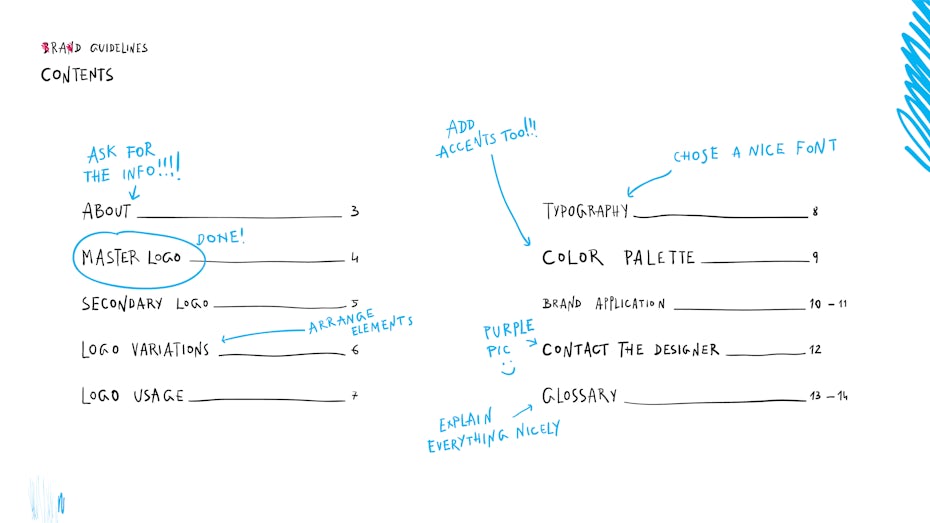 BRAND GUIDELINES
CONTENTS
ASK FOR
THE INFO!!!!
ABOUT 3
DONE!
MASTER LOGO 4
SECONDARY LOGO 5
ARRANGE
ELEMENTS
LOGO VARIATIONS 6
LOGO USAGE 7
ADD
ACCENTS TOO!!!
CHOSE A NICE FONT
TYPOGRAPHY 8
COLOR PALETTE 9
BRAND APPLICATION 10 - 11
PURPLE
PIC
CONTACT THE DESIGNER 12
GLOSSARY 13 - 14
EXPLAIN
EVERYTHING NICELY